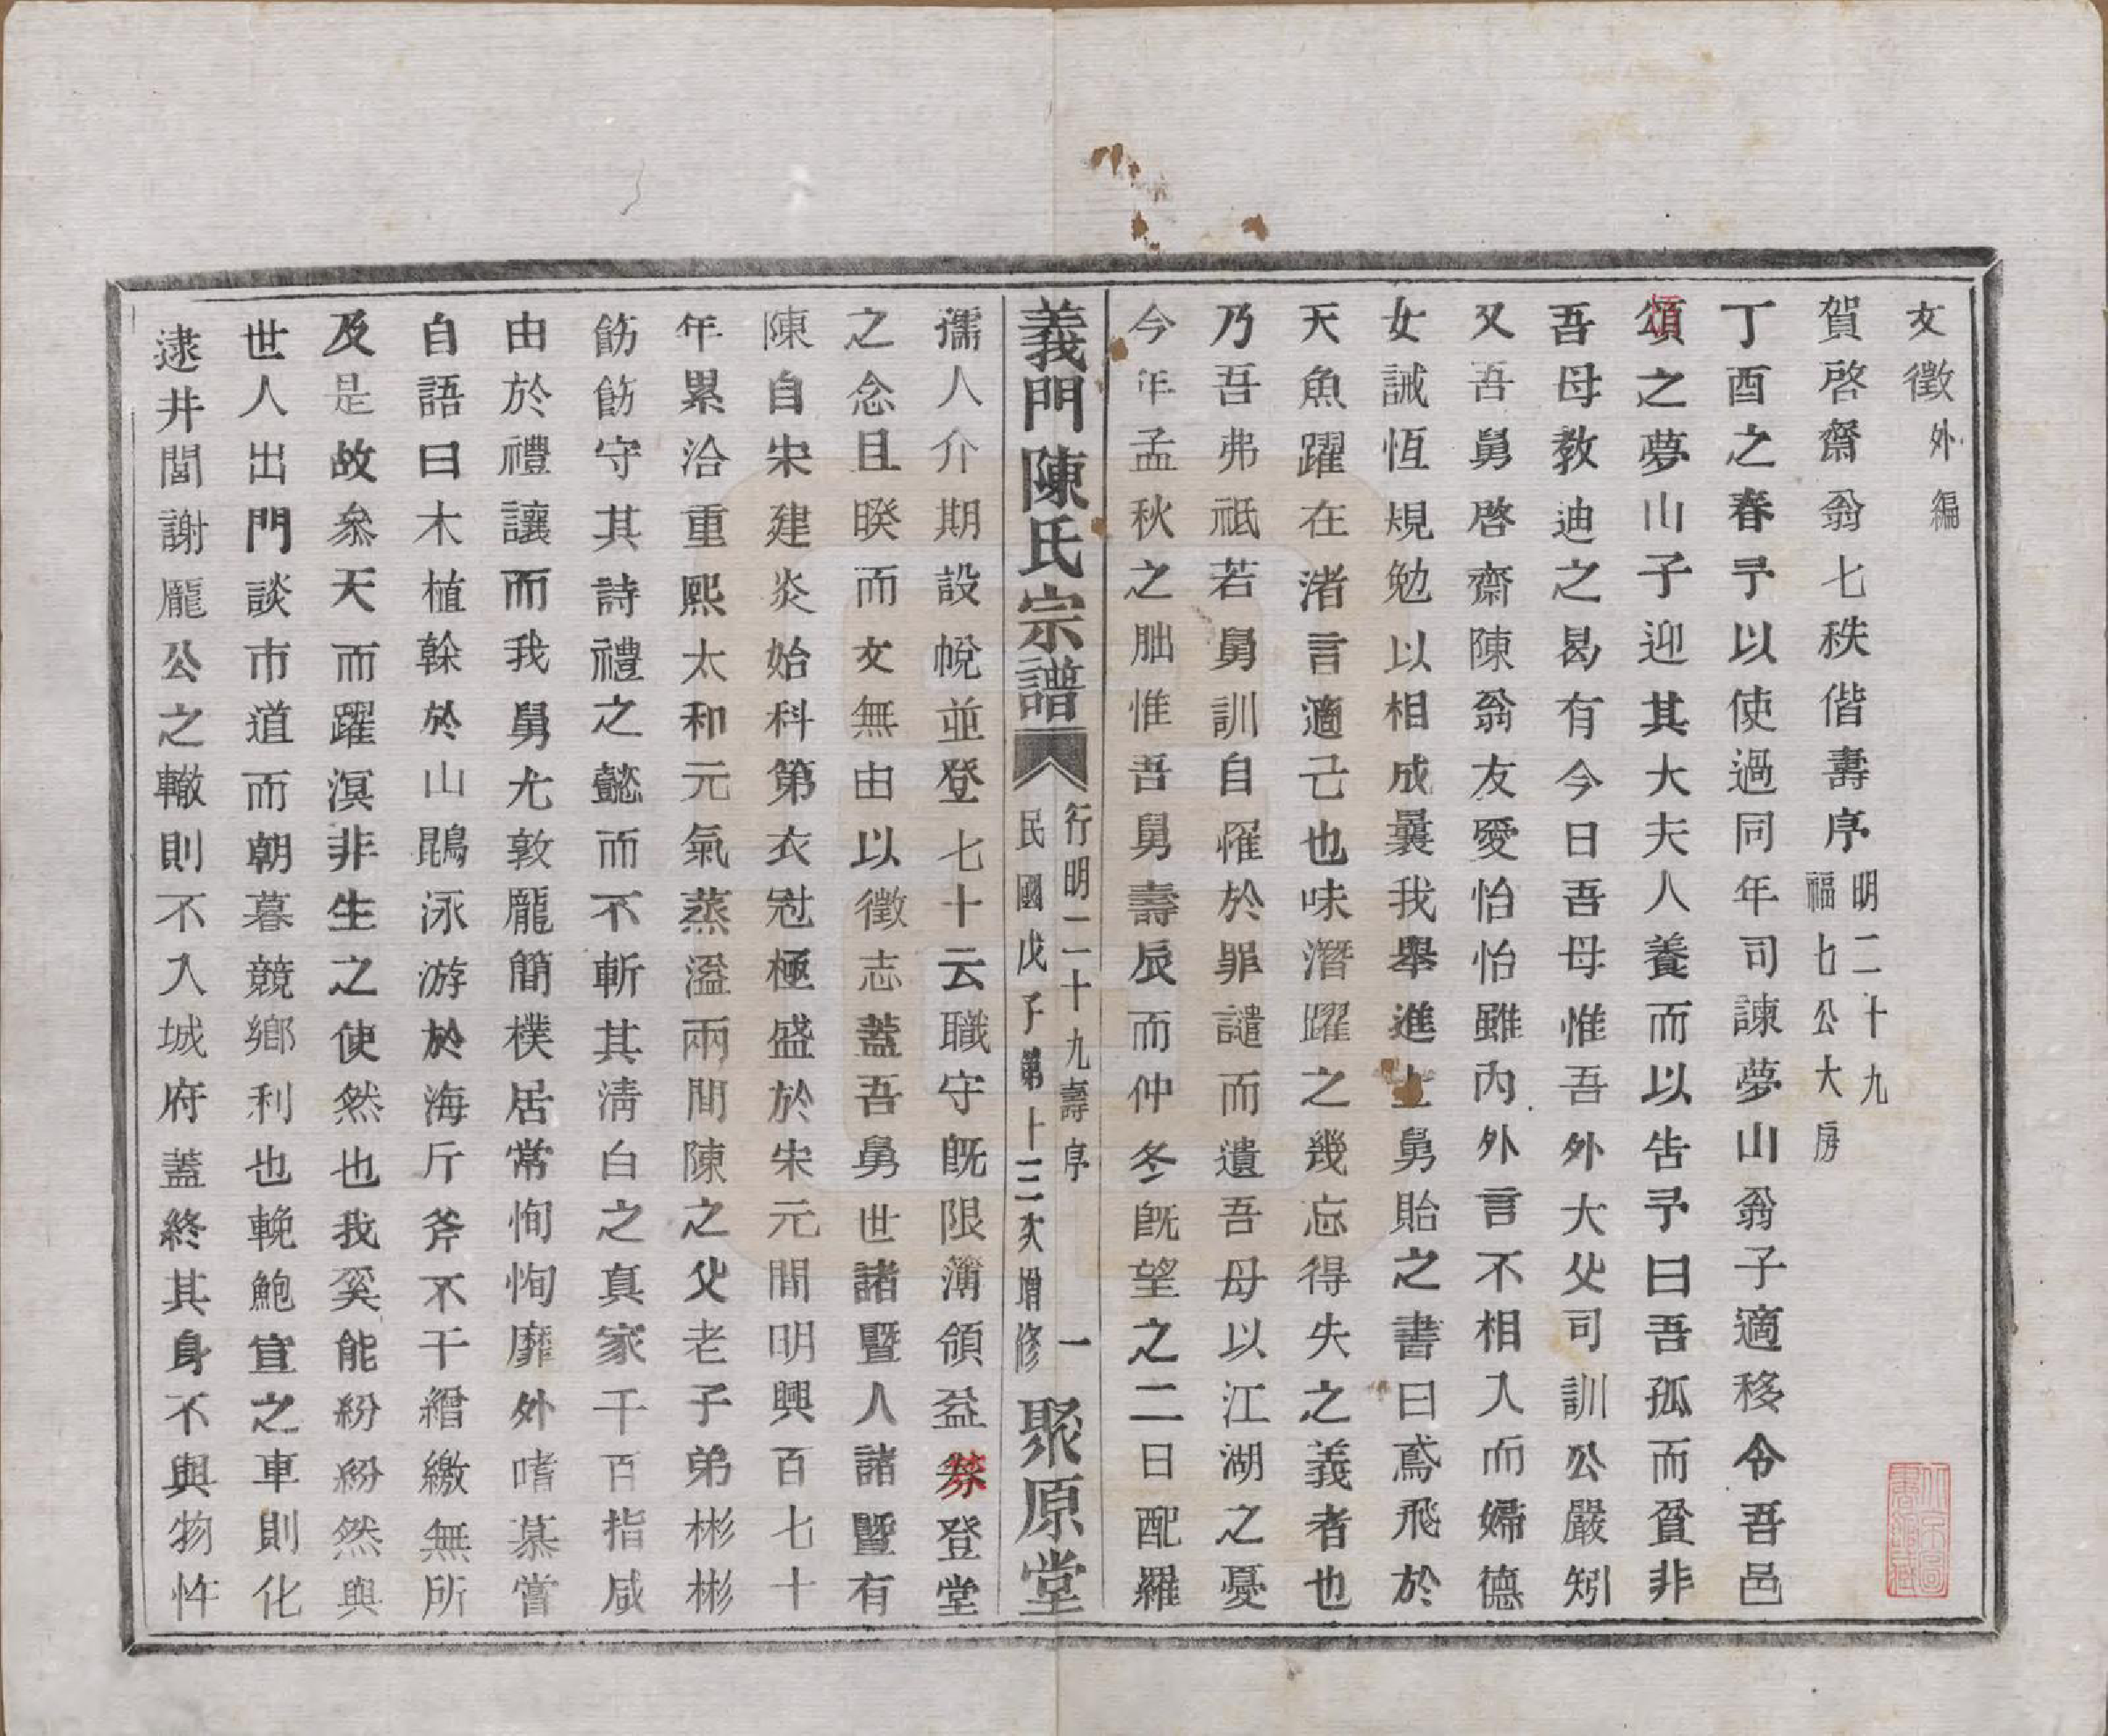 文徵外編
賀啓齋翁七秩偕壽序 明二十九 福七公大房
丁酉之春予以使過同年司諫夢山翁子適移令吾邑
頌之夢山子迎其大夫人養而以告予曰吾孤而貧非
吾母教迪之曷有今日吾母惟吾外大父司訓公嚴矧
又吾舅啓齋陳翁友愛怡怡雖內外言不相入而婦德
女誡恆規勉以相成曩我舉進士舅貽之書曰鳶飛於
天魚躍在渚言適己也味潛躍之幾忘得失之義者也
乃吾弗祗若舅訓自罹於罪譴而遺吾母以江湖之憂
今年孟秋之朏惟吾舅壽辰而仲冬旣望之二日配羅
義門陳氏宗譜
行明二十九壽序 一
民國戊子第十三次增修
聚原堂
孺人介期設帨並登七十云職守旣限簿領益棼登堂
之念且暌而文無由以徵志蓋吾舅世諸暨人諸暨有
陳自宋建炎始科第衣冠極盛於宋元間明興百七十
年累洽重熙太和元氣蒸溢兩間陳之父老子弟彬彬
飭飭守其詩禮之懿而不斬其淸白之真家千百指咸
由於禮讓而我舅尤敦龐簡樸居常恂恂靡外嗜慕嘗
自語曰木植榦於山鵾泳游於海斤斧不干繒繳無所
及是故粂天而躍溟非生之使然也我奚能紛紛然與
世人出門談市道而朝暮競鄉利也輓鮑宣之車則化
逮井閭謝龐公之轍則不入城府蓋終其身不與物忤